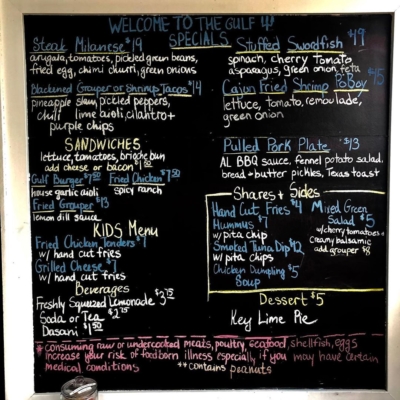 WELCOME TO THE GULF
SPECIALS
Steak Milanese $19
arugula, tomatoes, pickled green beans,
fried egg, chimi churri, green onions
Blackened Grouper or Shrimp Tacos $14
pineapple slaw, pickled peppers,
chili lime aioli, cilantro +
purple chips
SANDWICHES
lettuce, tomatoes, brioche bun
add cheese or bacon $1.50
Gulf Burger $7.50
house garlic aioli
Fried Chicken $7.50
spicy ranch
Fried Grouper $13
lemon dill sauce
KIDS Menu
Fried Chicken Tenders $7
w/ hand cut fries
Grilled Cheese $7
w/ hand cut fries
Beverages
Freshly Squeezed Lemonade $3.75
Soda or Tea $2.75
Dasani $1.50
Stuffed Swordfish $19
spinach, cherry tomato
asparagus, green onion, feta
Cajun Fried Shrimp PoBoy $15
lettuce, tomato, remoulade,
green onion
Pulled Pork Plate $13
AL BBQ sauce, fennel potato salad,
bread + butter pickles, Texas toast
Shares + Sides
Hand Cut Fries $4
Hummus $7
w/ pita chip
Smoked Tuna Dip $12
w/ pita chips
Chicken Dumpling $5
Soup
Mixed Green
Salad $5
w/ cherry tomatoes +
creamy balsamic
add grouper $8
Dessert $5
Key Lime Pie
* consuming raw or undercooked meats, poultry, seafood, shellfish, eggs
increase your risk of foodborn illness especially if you may have certain
medical conditions ** contains peanuts